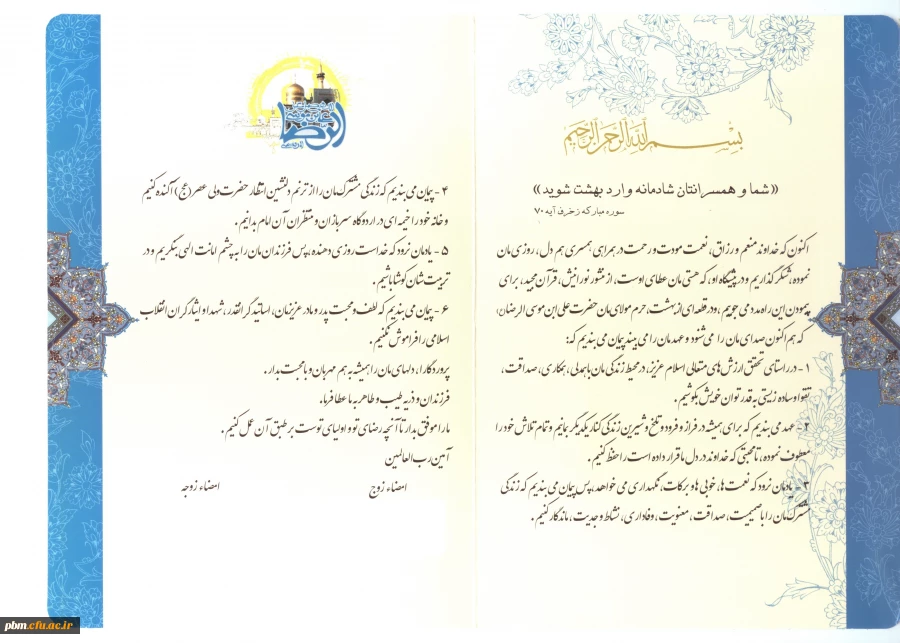 بسم الله الرحمن الرحیم
«شما و همسرانتان شادمانه وارد بهشت شوید»
سوره مبارکه زخرف آیه ۷۰
اکنون که خداوند منعم و رزاق، نعمت مودت و رحمت در همراهی، همسری هم دل، روزی مان
نموده، شکرگذاریم و در پیشگاه او، که هستی مان عطای اوست، از منشور نورانیش، قرآن مجید، برای
پیمودن این راه مدد می جوییم، و در قطعه ای از بهشت، حرم مولای مان حضرت علی ابن موسی الرضا(ع)
که هم اکنون صدای مان را می شنود و عهدمان را می بیند پیمان می بندیم که:
۱- در راستای تحقق ارزش های متعالی اسلام عزیز، در محیط زندگی مان با همدلی، همکاری، صداقت،
تقوا و ساده زیستی به قدر توان خویش بکوشیم.
۲- عهد می بندیم که برای همیشه در فراز و فرود و تلخ و شیرین زندگی کنار یکدیگر بمانیم و تمام تلاش خود را
معطوف نموده، تا محبتی که خداوند در دل ما قرار داده است را حفظ کنیم.
۳- یادمان نرود که نعمت ها، خوبی ها و برکات، نگهداری می خواهد، پس پیمان می بندیم که زندگی
مشترک مان را با صمیمیت، صداقت، معنویت، وفاداری، نشاط و جدیت، ماندگار کنیم.
الرضا
۴- پیمان می بندیم که زندگی مشترک مان را از ترنم دلنشین انتظار حضرت ولی عصر (عج) آکنده کنیم
و خانه خود را خیمه ای در اردوگاه سربازان و منتظران آن امام بدانیم.
۵- یادمان نرود که خداست روزی دهنده، پس فرزندان مان را به چشم امانت الهی بنگریم و در
تربیت شان کوشا باشیم.
۶- پیمان می بندیم که لطف و محبت پدر و مادر عزیزمان، اساتید گرانقدر، شهدا و ایثارگران انقلاب
اسلامی را فراموش نکنیم.
پروردگارا، دلهای مان را همیشه به هم مهربان و با محبت بدار.
فرزندان و ذریه طیب و طاهر به ما عطا فرما.
ما را موفق بدار تا آنچه رضای تو و اولیای توست بر طبق آن عمل کنیم.
آمین رب العالمین
امضاء زوج
امضاء زوجه
pbm.cfu.ac.ir